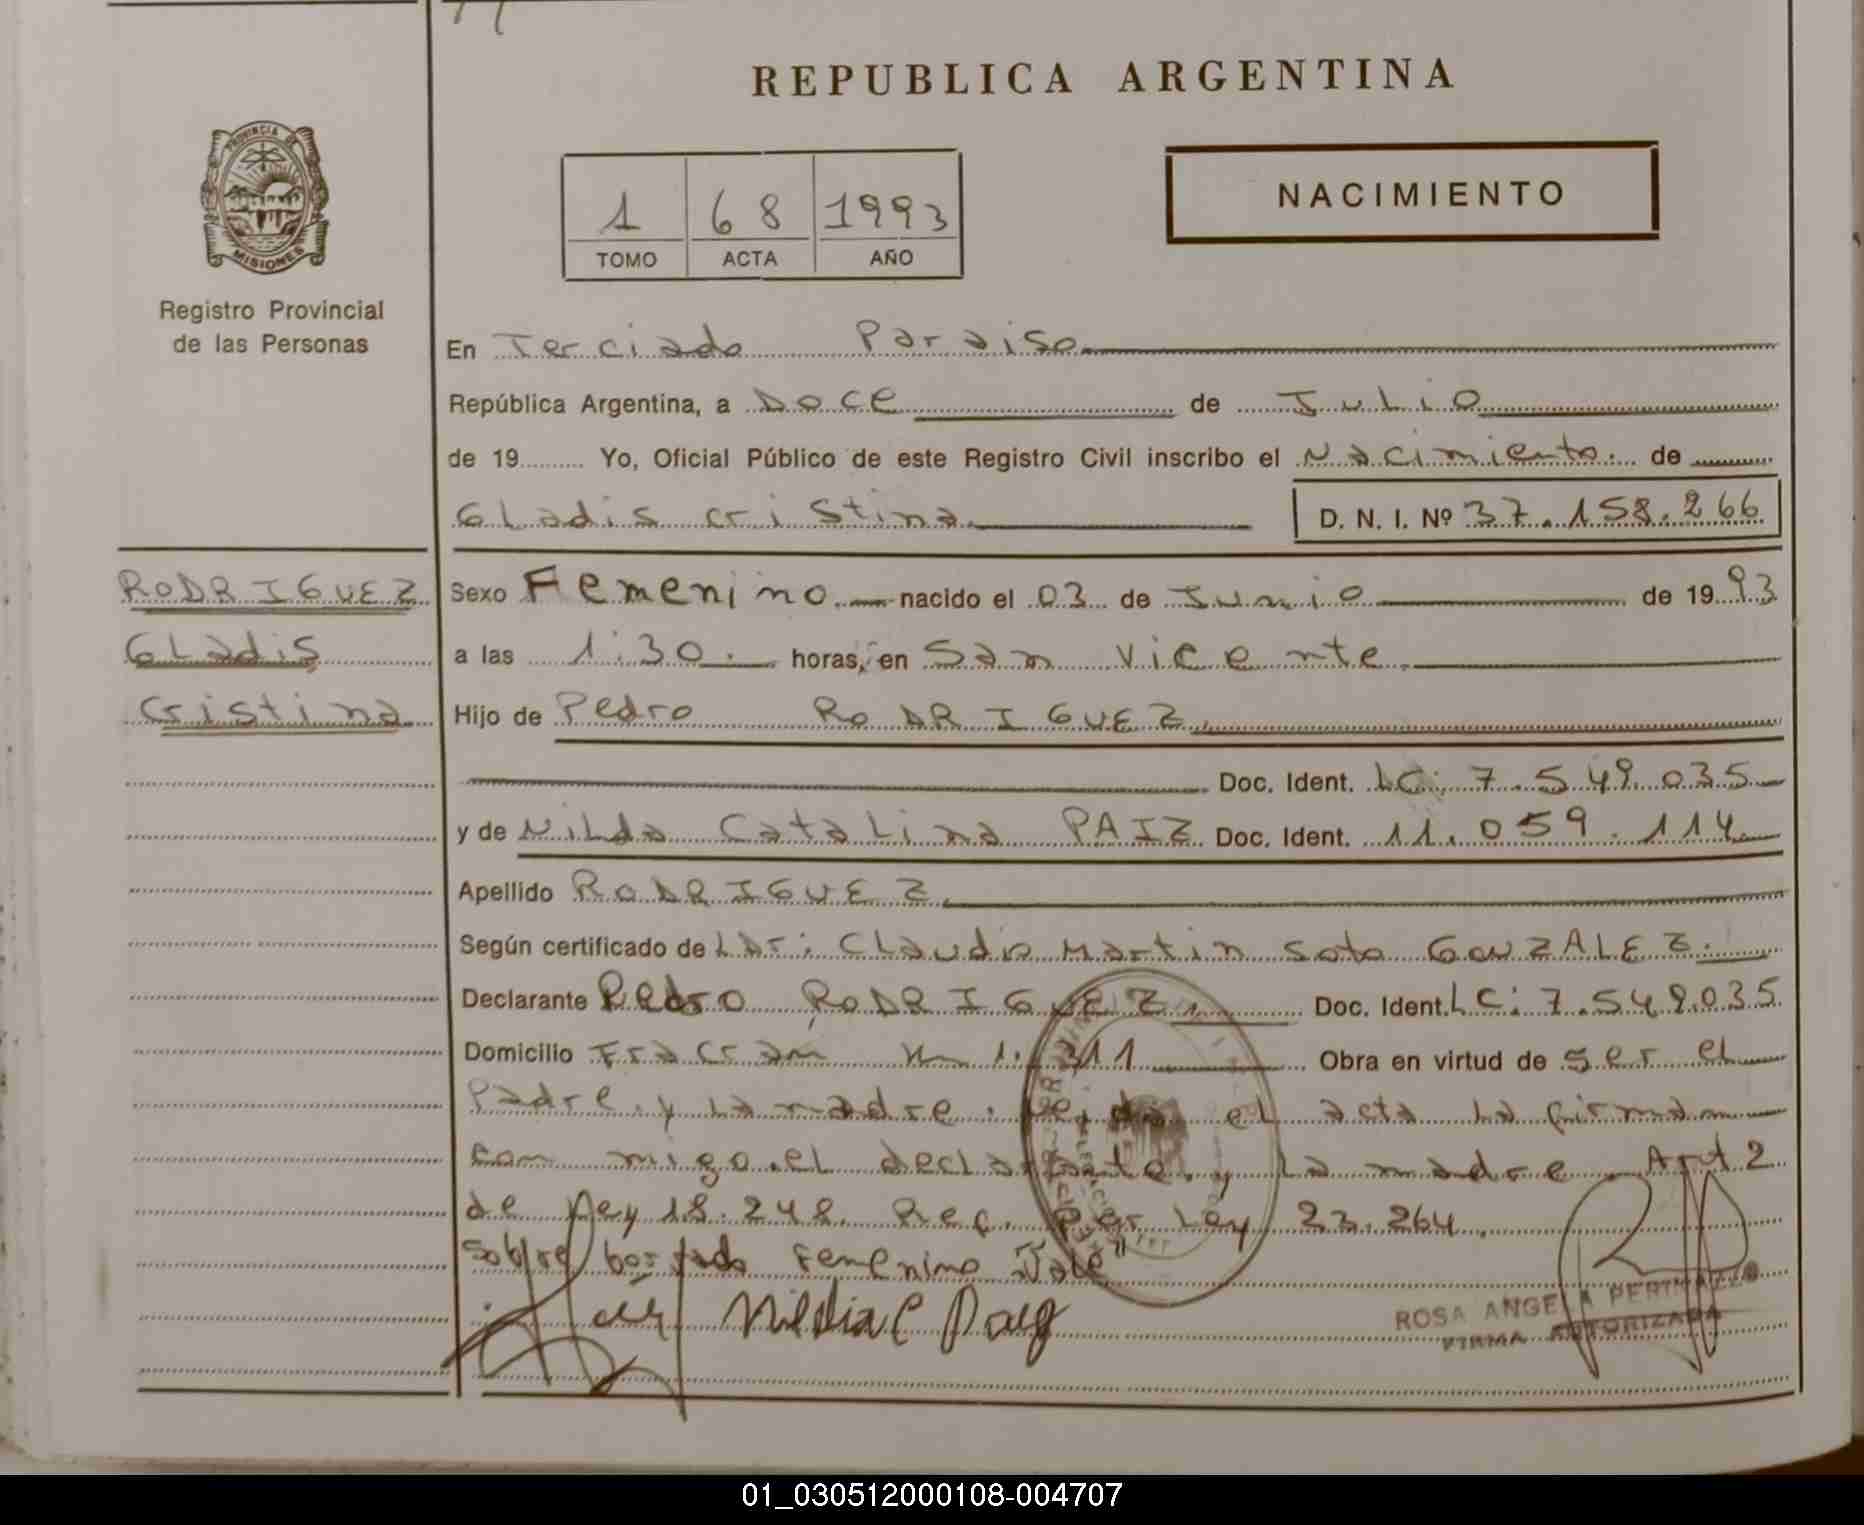 REPUBLICA ARGENTINA
PROVINCIA DE
MISIONES
Registro Provincial
de las Personas
1 68 1993
TOMO ACTA AÑO
NACIMIENTO
En Terciado Paraiso
República Argentina, a Doce de Julio
de 19 Yo, Oficial Público de este Registro Civil inscribo el Nacimiento. de
Gladis cristina D. N. I. Nº 37.158.266
RODRIGUEZ
Gladis
Cristina
Sexo Femenino. nacido el 03 de Junio de 1993
a las 1:30. horas, en San Vicente.
Hijo de Pedro RODRIGUEZ.
Doc. Ident. LC: 7.549.035
y de Nilda Catalina PAIZ Doc. Ident. 11.059.114
Apellido RODRIGUEZ.
Según certificado de L Dr: Claudio Martin Soto GONZALEZ.
Declarante Pedro RODRIGUEZ. Doc. Ident. LC: 7.549.035
Domicilio Fracran Km 1.311 Obra en virtud de ser el
Padre. y la madre. el acta la firman
con migo. el declarante. y la madre. Art 2
de Ley 18.248. Por Ley 23.264.
Sobre borrado Femenino "Vale"
ROSA ANGELA
FIRMA AUTORIZADA
01_030512000108-004707